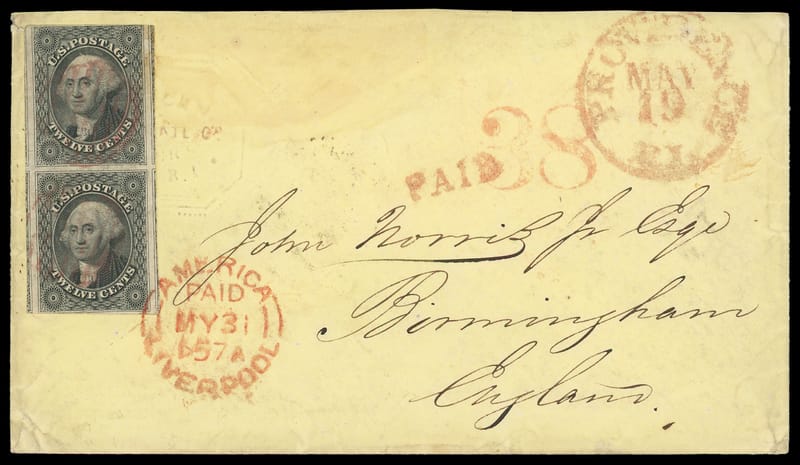 U.S. POSTAGE
TWELVE CENTS
U.S. POSTAGE
TWELVE CENTS
PROVIDENCE
MAY
19
R.I.
PAID
38
John Norris Jr Esqe
Birmingham
England.
AMERICA
PAID
MY 31
57 A
LIVERPOOL